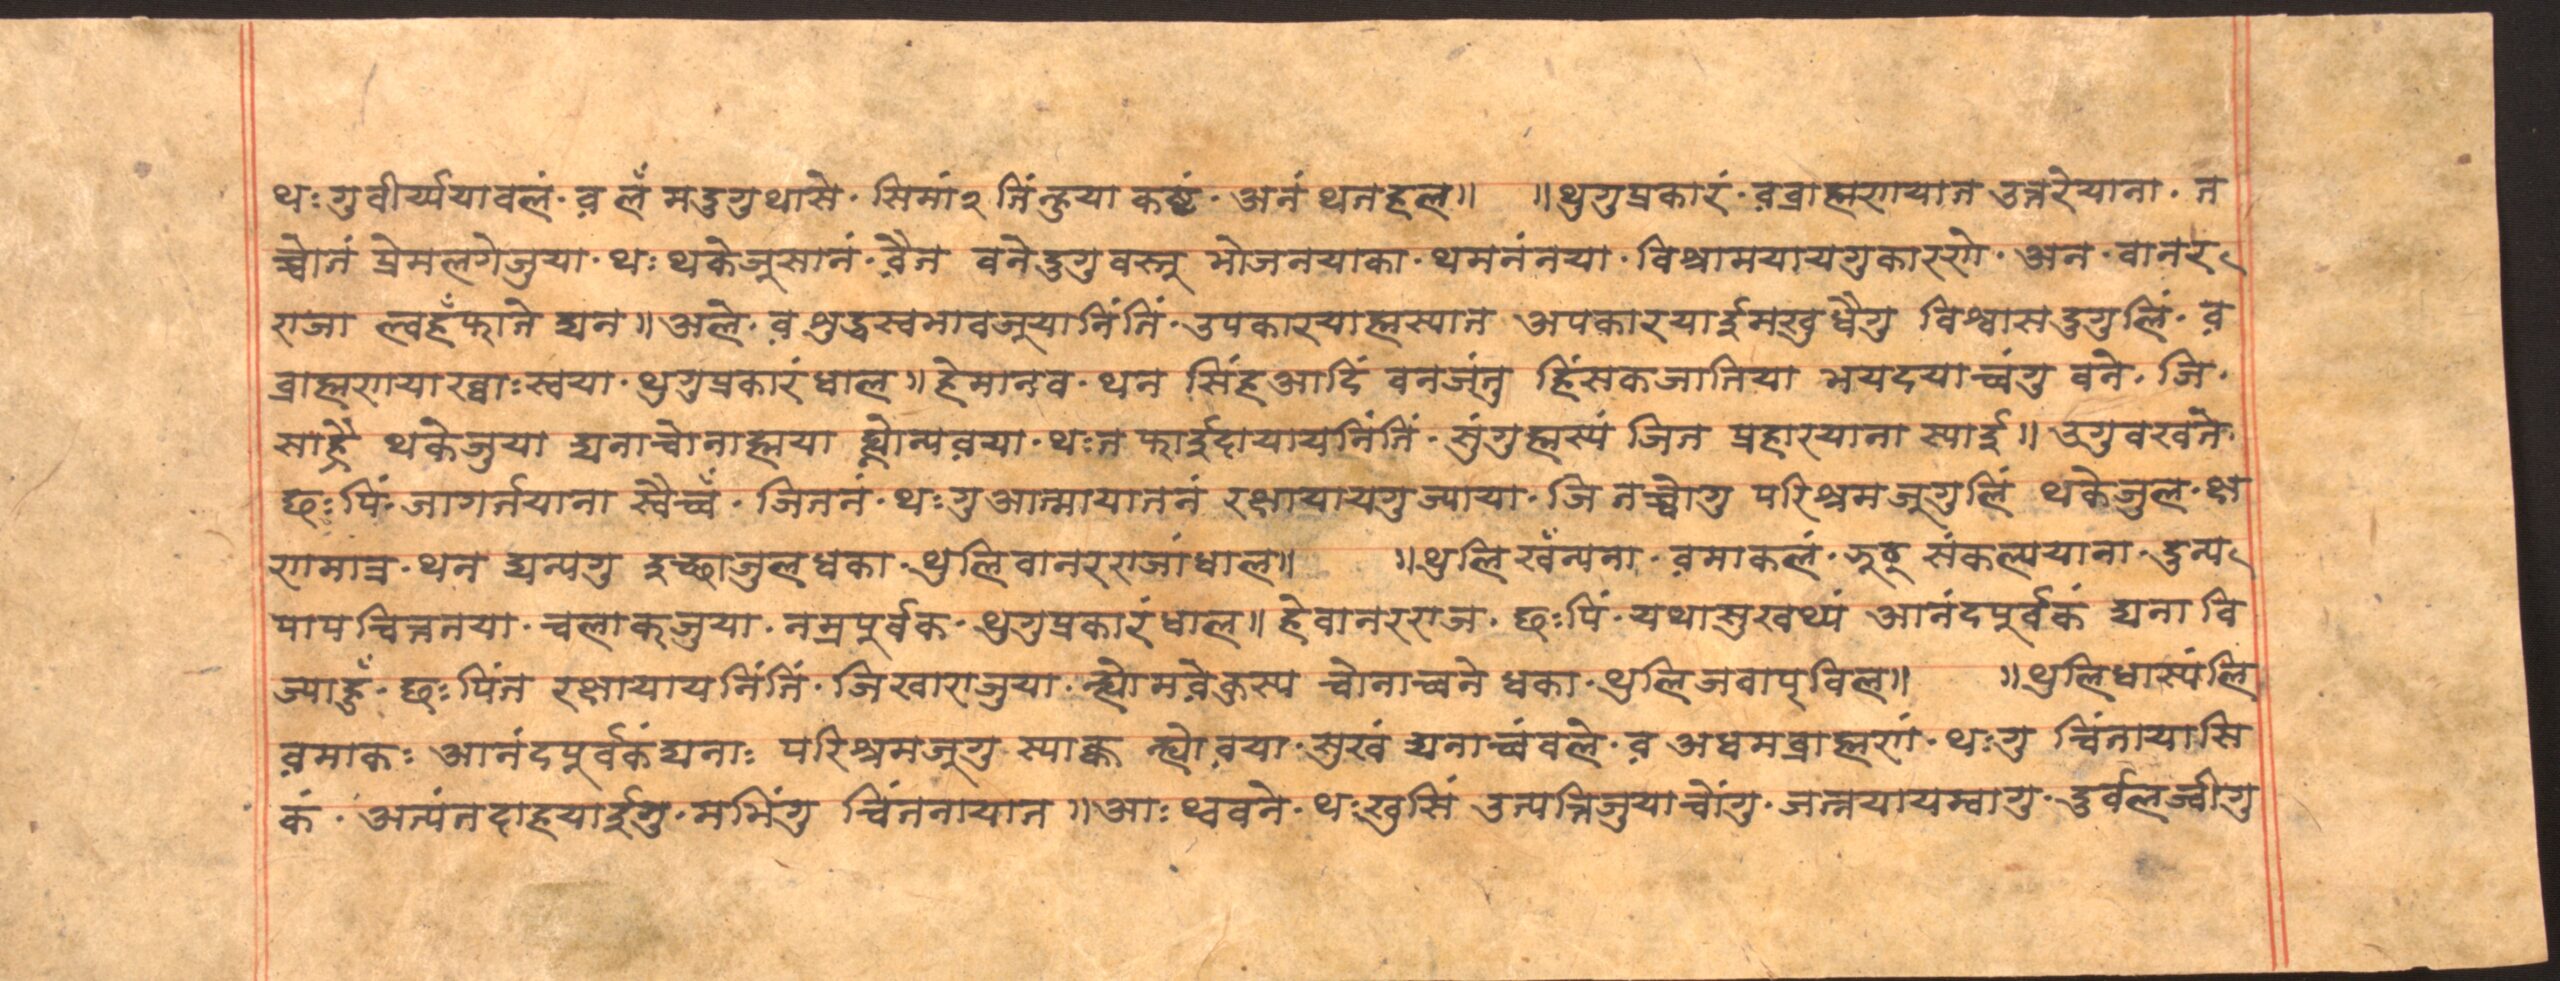 थः गु वीर्य्यया वलं · व़ लँ मदुगु थासे · सिमां २ तिंन्हुया कष्टं · अनं थन हल॥ ॥थुगु प्रकारं · व़ ब्राह्मणयात उत्तरे याना · त
च्वोतं प्रेम लगेजुया · थः थके जुसानं · व़ैत वने दुगु वस्तु भोजन याका · थमनं नया · विश्राम यायगु कारणे · अन · वानर
राजा ल्वहँ फाते द्यन॥ अले · व़ शुद्ध स्वभाव जूया निंतिं · उपकार याह्मस्यात अपकार याई मखु धैगु विश्वास दुगुलिं · व़
ब्राह्मणया ख्वाः स्वया · थुगु प्रकारं धाल॥ हे मानव · थन सिंह आदिं वनजंतु हिंसक जातिया भय दया च्वंगु वने · जि ·
साह्रै थके जुया द्यना च्वोनाह्मया ह्योन्य व़या · थः त फाईदा याय निंतिं · सुं गुह्मस्यं जित प्रहार याना स्याई॥ उगु वखते
छःपिं · जागर्त याना स्वै च्वँ · जित नं · थः गु आत्मायात नं रक्षा यायगु ज्याया · जि त च्वोगु परिश्रम जूगुलिं थके जुल · क्ष
णमात्र · थन द्यन्यगु इच्छा जुल धका · थुलि वानर राजां धाल॥ ॥थुलि खँ न्यना · व़ माकलं · झूठ् संकल्प याना · दुन्य
पाप चित्त तया · चलाक् जुया · नम्रपुर्वक · थुगु प्रकारं धाल॥ हे वानरराज · छःपिं · यथासुखथ्यं आनंदपुर्वकं द्यना वि
ज्याहुँ · छःपिंत रक्षा याय निंतिं · जि खारा जुया · न्ह्यो मव़ेकुस्य चोना च्वने धका · थुलि जवाप् विल॥ ॥थुलि धास्यंलि
व़ माकः आनंदपुर्वकं द्यनाः परिश्रम जूगु स्याक्क न्ह्यो व़या · सुखं द्यना च्वंवले · व़ अधम ब्राह्मणं · थः गु चिंतायासि
कं · अत्यंत दाह याईगु · मभिंगु चिंतना यात॥ आः थ्व वने · थः खुसिं उत्पत्ति जुया चोंगु · जत्न याय म्वागु · दुर्वल ज्वीगु